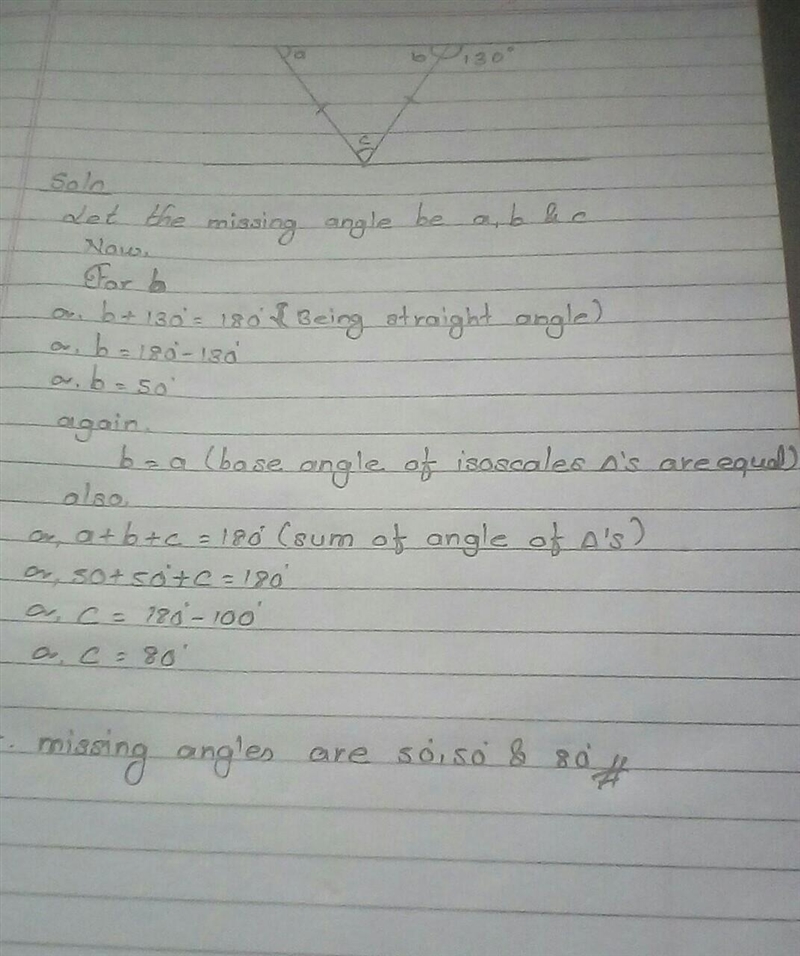 a b 130°
c
Soln
Let the missing angle be a, b & c
Now,
For b
or, b + 130° = 180° (Being straight angle)
or, b = 180° - 130°
or, b = 50°
again.
b = a (base angle of isoscales Δ's are equal)
also,
or, a + b + c = 180° (sum of angle of Δ's)
or, 50 + 50° + c = 180°
or, c = 180° - 100°
or, c = 80°
∴ missing angles are 50°, 50° & 80° #